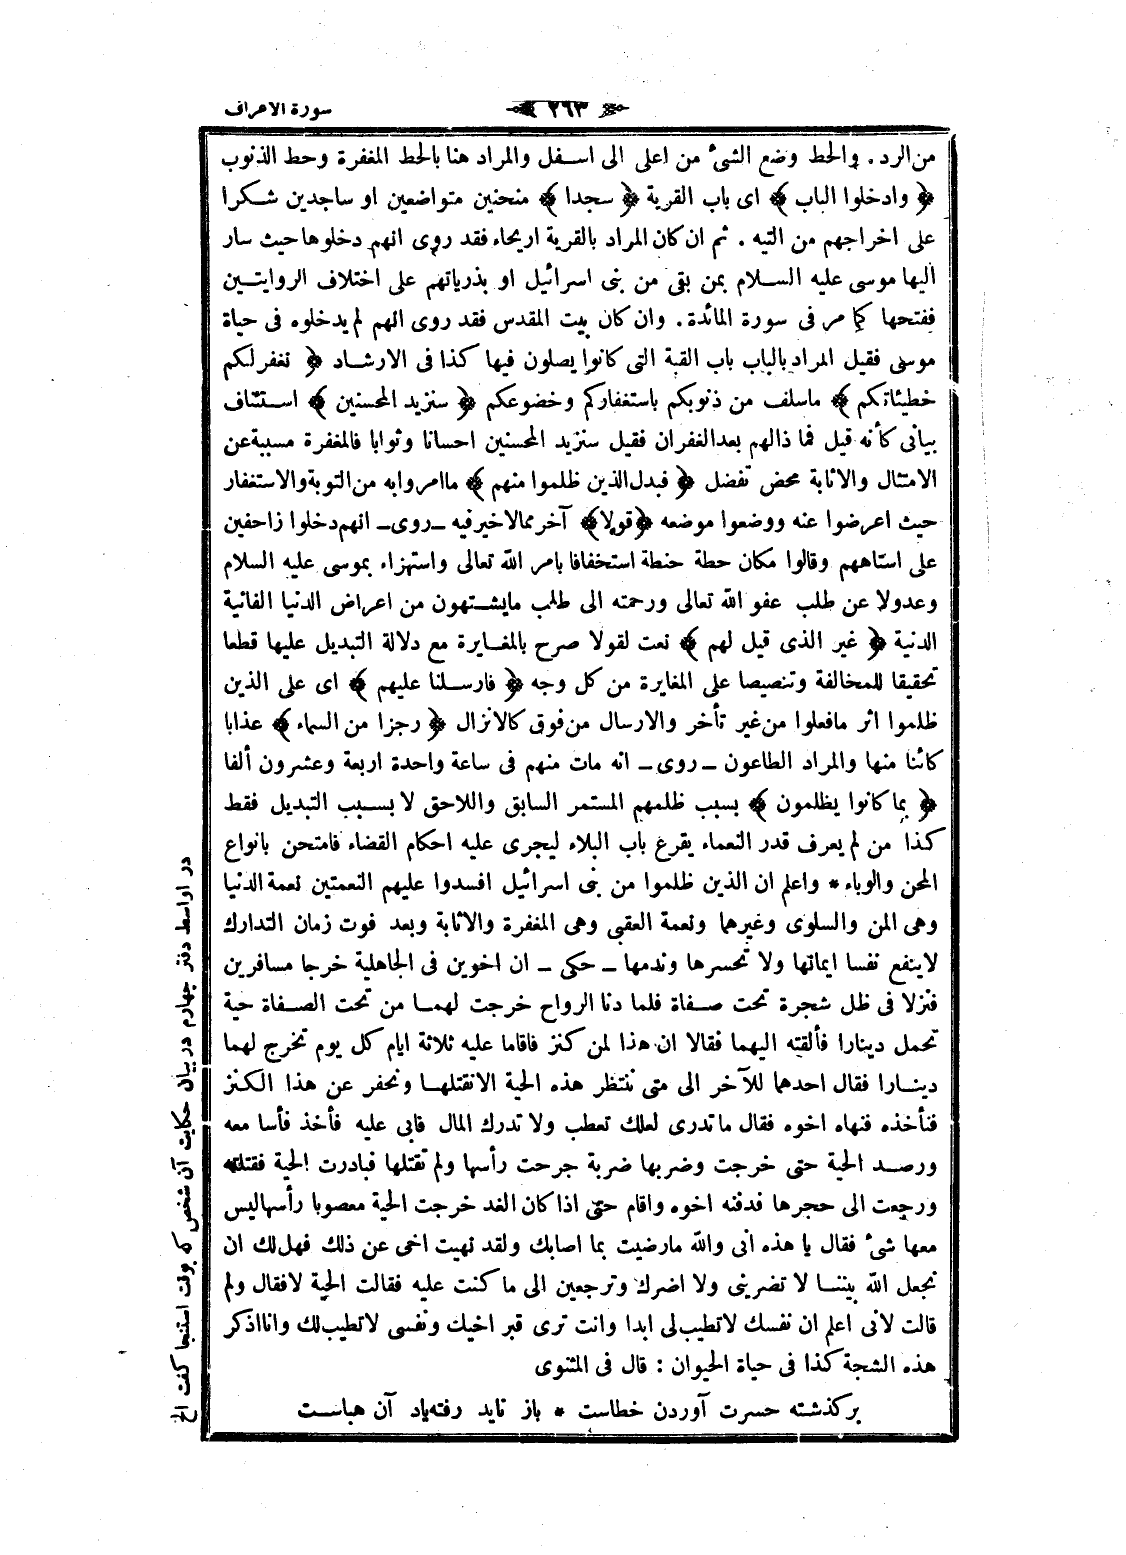 سورة الاعراف
٢٦٣
من الرد. والحط وضع الشئ من اعلى الى اسفل والمراد هنا بالحط المغفرة وحط الذنوب
﴿ وادخلوا الباب ﴾ اى باب القرية ﴿ سجدا ﴾ منحنين متواضعين او ساجدين شكرا
على اخراجهم من التيه . ثم ان كان المراد بالقرية اريحاء فقد روى انهم دخلوها حيث سار
اليها موسى عليه السلام بمن بقى من بنى اسرائيل او بذرياتهم على اختلاف الروايتين
ففتحها كما مر فى سورة المائدة. وان كان بيت المقدس فقد روى انهم لم يدخلوه فى حياة
موسى فقيل المراد بالباب باب القبة التى كانوا يصلون فيها كذا فى الارشاد ﴿ نغفر لكم
خطيئاتكم ﴾ ماسلف من ذنوبكم باستغفاركم وخضوعكم ﴿ سنزيد المحسنين ﴾ استئناف
بيانى كأنه قيل فما ذالهم بعدالغفران فقيل سنزيد المحسنين احسانا وثوابا فالمغفرة مسببة عن
الامتثال والاثابة محض تفضل ﴿ فبدل الذين ظلموا منهم ﴾ ماامروابه من التوبة والاستغفار
حيث اعرضوا عنه ووضعوا موضعه ﴿ قولا ﴾ آخر ممالاخيرفيه ـ روى ـ انهم دخلوا زاحفين
على استاههم وقالوا مكان حطة حنطة استخفافا بامر الله تعالى واستهزاء بموسى عليه السلام
وعدولا عن طلب عفو الله تعالى ورحمته الى طلب مايشتهون من اعراض الدنيا الفانية
الدنية ﴿ غير الذى قيل لهم ﴾ نعت لقولا صرح بالمغايرة مع دلالة التبديل عليها قطعا
تحقيقا للمخالفة وتنصيصا على المغايرة من كل وجه ﴿ فارسلنا عليهم ﴾ اى على الذين
ظلموا اثر مافعلوا من غير تأخر والارسال من فوق كالانزال ﴿ رجزا من السماء ﴾ عذابا
كائنا منها والمراد الطاعون ـ روى ـ انه مات منهم فى ساعة واحدة اربعة وعشرون ألفا
﴿ بما كانوا يظلمون ﴾ بسبب ظلمهم المستمر السابق واللاحق لا بسبب التبديل فقط
كذا من لم يعرف قدر النعماء يقرع باب البلاء ليجرى عليه احكام القضاء فامتحن بانواع
المحن والوباء * واعلم ان الذين ظلموا من بنى اسرائيل افسدوا عليهم النعمتين نعمة الدنيا
وهى المن والسلوى وغيرهما ونعمة العقبى وهى المغفرة والاثابة وبعد فوت زمان التدارك
لاينفع نفسا ايمانها ولا تحسرها وندمها ـ حكى ـ ان اخوين فى الجاهلية خرجا مسافرين
فنزلا فى ظل شجرة تحت صفاة فلما دنا الرواح خرجت لهما من تحت الصفاة حية
تحمل دينارا فألقته اليهما فقالا ان هذا لمن كنز فاقاما عليه ثلاثة ايام كل يوم تخرج لهما
دينارا فقال احدهما للآخر الى متى ننتظر هذه الحية الانقتلها ونحفر عن هذا الكنز
فنأخذه فنهاه اخوه فقال ماتدرى لعلك تعطب ولا تدرك المال فابى عليه فأخذ فأسا معه
ورصد الحية حتى خرجت وضربها ضربة جرحت رأسها ولم تقتلها فبادرت الحية فقتلته
ورجعت الى حجرها فدفنه اخوه واقام حتى اذا كان الغد خرجت الحية معصوبا رأسهاليس
معها شئ فقال يا هذه انى والله مارضيت بما اصابك ولقد نهيت اخى عن ذلك فهل لك ان
نجعل الله بيننا لا تضرينى ولا اضرك وترجعين الى ما كنت عليه فقالت الحية لا فقال ولم
قالت لأنى اعلم ان نفسك لا تطيب لى ابدا وانت ترى قبر اخيك ونفسى لا تطيب لك وانا اذكر
هذه الشجة كذا فى حياة الحيوان : قال فى المثنوى
بر كذشته حسرت آوردن خطاست * باز نايد رفته ياد آن هباست
در اواسط دفتر چهارم در بيان حكايت آن شخص كه بوقت استنجا كفت الخ